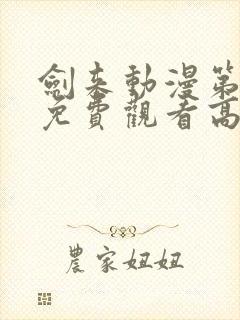 劍來動漫第
免費觀看高
農家妞妞